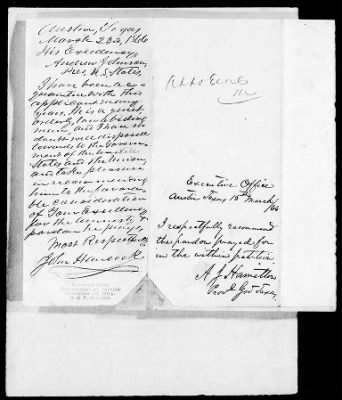 Austin, Texas
March 23d, 1866
His Excellency
Andrew Johnson,
Pres, U. S. States
I have been ac-
quainted with this
applicant many
years. He is a quiet
orderly, law abiding
man, and I have no
doubt well disposed
towards the Govern-
ment of the United
States and the Union,
and take pleasure
in recommending
him to the favora-
ble consideration
of Your Excellency
for the amnesty &
pardon he prays.
Most Respectfully
John Hancock
Executive Office
Austin Texas 15th March
/66
I respectfully recommend
the pardon prayed for
in the within petition
A. J. Hamilton
Provl Gov Texas